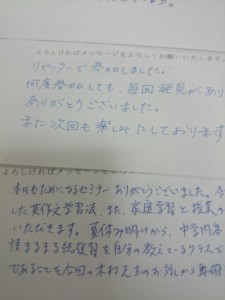 よろしければメッセージをよろしくお願いいたします。
リピーターで参加しました。
何度参加しても、毎回発見があり
ありがとうございました。
また次回も楽しみにしております
よろしければメッセージを
本日もためになるセミナーありがとうございました。今
した英作文学習法、また、家庭学習と授業の
いただきます。夏休み明けから、中学内容
総復習を自分の教えているクラスで
であることを今回の木村先生のお話から再確